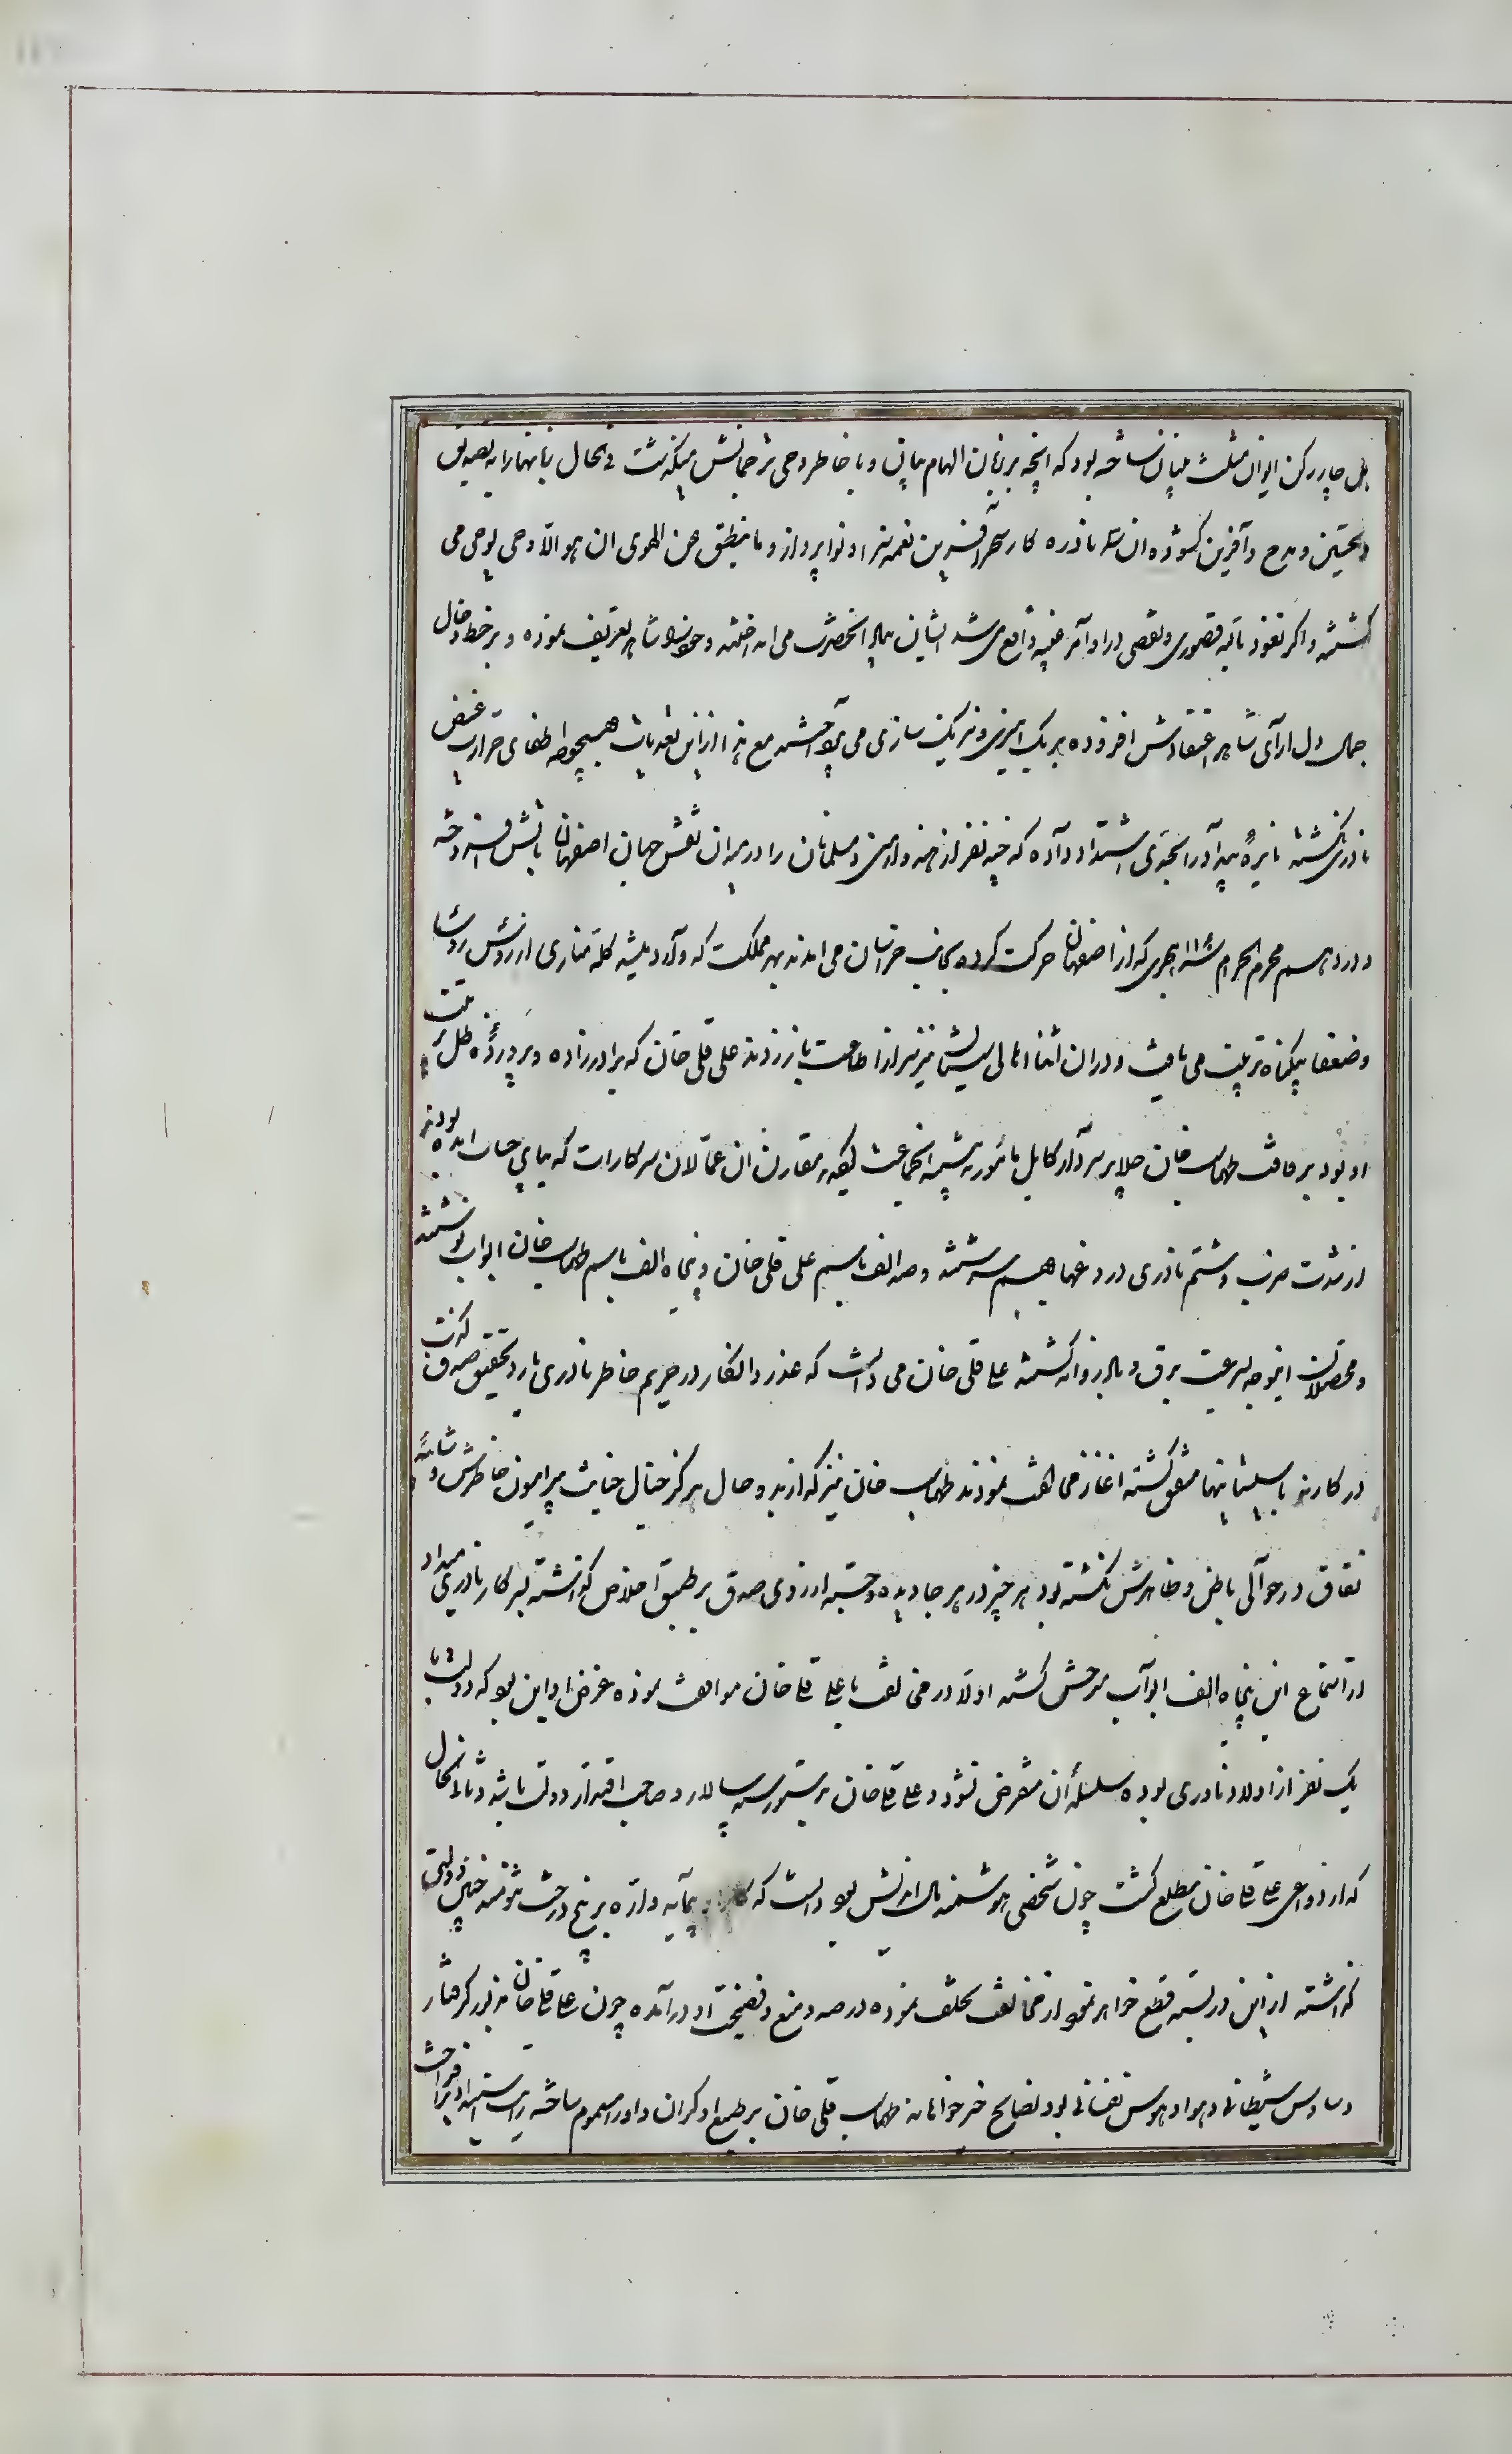 بل چار رکن ایوان مثلث بنیان ساخته بود که آنچه بر زبان الهام بیانی و یا خاطر وحی ترجمانش میگذشت فی الحال زبانها را به تصدیق
و تحسین و مدح و آفرین گشوده ان نادره کار سحر آفرین نغمه سرا و نوا پرداز و ما ینطق عن الهوی ان هو الّا وحی یوحی می
گشتند و اگر نعوذ بالله قصوری و نقصی در اوامر واقع می شد ایشان آنحضرت می انداختند و تعریف نموده و بر خط و خال
جمال دل ارای شاهد اعتقادش افزوده برنگ امیزی و نیرنگ سازی می پرداختند مع هذا از این تعدیات هیچوجه اطفای حرارت غیض
نادری نگشته نایره بیداد را بحدی اشتداد داده که چند نفر از هند و ارمنی و مسلمانان را در میدان نقش جهان اصفهان باتش افروخته
و در دهم محرم الحرام هجری که از اصفهان حرکت کرده بجانب خراسان می امدند بهر مملکت که وارد میشد کله مناری از رؤس رؤسا
و ضعفا بیگناه ترتیب می یافت و در ان اثنا اهالی سیستان نیز سر از اطاعت باز زدند علی قلی خان که برادرزاده و پرورده ظل تربیت
او بود برفاقت طهماسب خان جلایر سردار کابل مأمور به تنبیه انجماعت لیکن مقارن ان عمّالان سرکارات که بپای حساب امده بودند
از شدت ضرب و شتم نادری دروغها بهم سرشتند و صد الف باسم علی قلی خان و پنجاه الف باسم طهماسب خان ابواب نوشتند
و محصلان انوجه بسرعت برق و باد روانه گشتند علی قلی خان می دانست که عذر و انکار در حریم خاطر نادری بار و تحقیق صدق
در کار نه با سیستانیها متفق گشته اغاز مخالفت نمودند طهماسب خان نیز که از بدو حال هرگز خیال خیانت پیرامون خاطرش و شائبه
نفاق در حوالی باطن و ظاهرش نگشته بود هر چیز در هر جا دیده و جسته از روی صدق بر طبق اخلاص گذاشته بسرکار نادری میداد
از استماع این پنجاه الف ابواب متوحش گشته اولا در مخالفت با علی قلی خان موافقت نموده غرض او این بود که دولت با
یک نفر از اولاد نادری بوده سلسلهٔ ان منقرض نشود و علی قلی خان بدستور سپه سالار و صاحب اقتدار دولت باشد و ثانی الحال
که از دواعی علی قلی خان مطلع گشت چون شخصی هوشمند مال اندیش بود دانست که پیمانه و اره بر بیخ درخت تنومند چنین دولتی
گذاشته از این در بسته قطع خواهد نمود از مخالفت تخلف نموده در صدد منع و نصیحت او در آمده چون علی قلی خان مزبور گرفتار
وساوس شیطانی و هوا و هوس نفسانی بود نصایح خیرخواهانه طهماسب قلی خان بر طبع او گران و او را مسموم ساخته رایت استبداد برافراخت